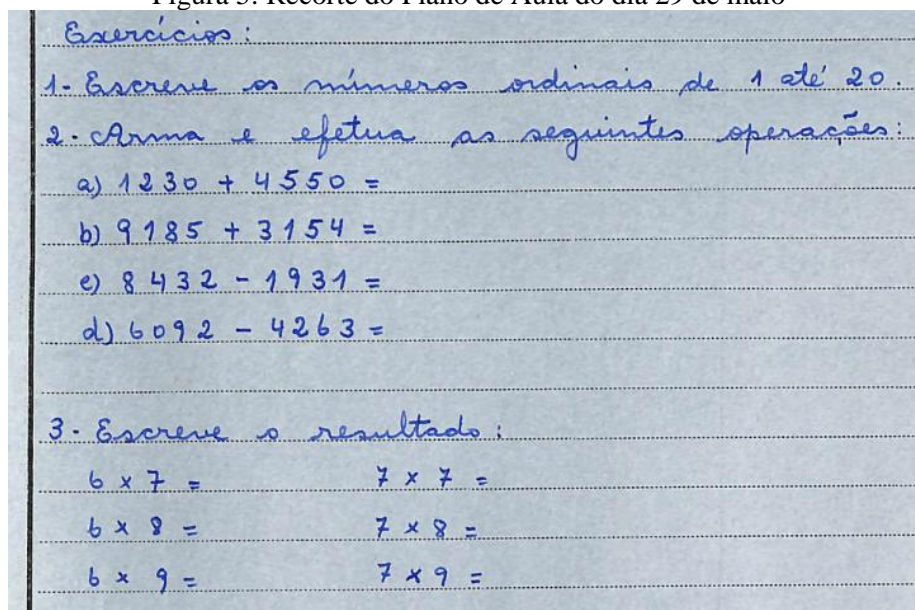 Figura 5: Recorte do Plano de Aula do dia 29 de maio
Exercícios:
1- Escreve os números ordinais de 1 até 20.
2- Arma e efetua as seguintes operações:
a) 1230 + 4550 =
b) 9185 + 3154 =
c) 8432 - 1931 =
d) 6092 - 4263 =
3- Escreve o resultado:
6 x 7 = 7 x 7 =
6 x 8 = 7 x 8 =
6 x 9 = 7 x 9 =